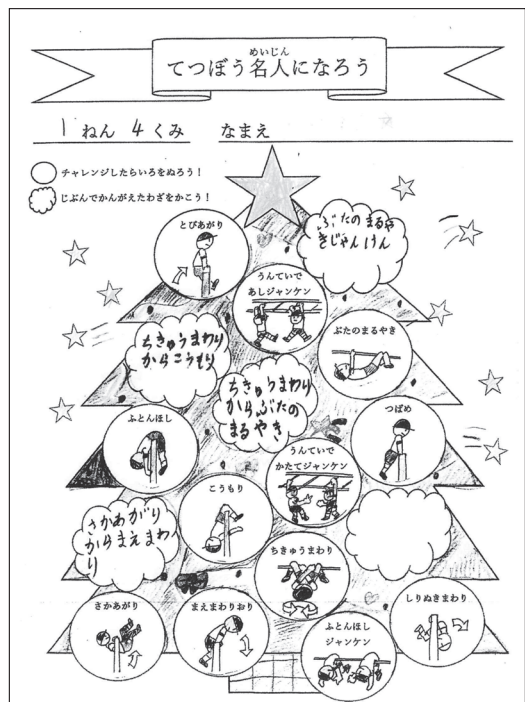 めいじん
てつぼう名人になろう
1 ねん 4 くみ なまえ
チャレンジしたらいろをぬろう！
じぶんでかんがえたわざをかこう！
とびあがり
ぶたのまるや
きじゃんけん
うんていで
あしジャンケン
ぶたのまるやき
ちきゅうまわり
からこうもり
ちきゅうまわり
からぶたの
まるやき
つばめ
ふとんほし
うんていで
かたてジャンケン
こうもり
さかあがり
からまえまわ
り
ちきゅうまわり
さかあがり
まえまわりおり
しりぬきまわり
ふとんほし
ジャンケン